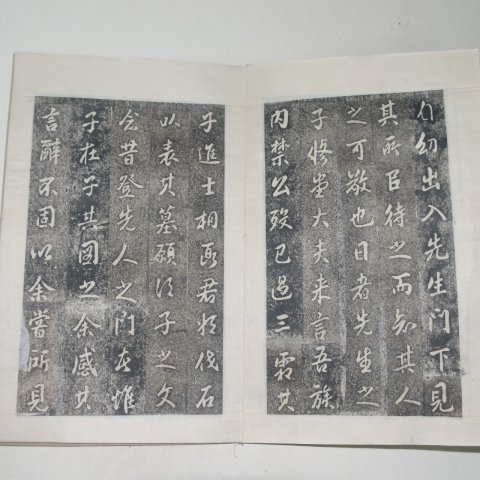 勿出入先生门下見
其所以待之而知其人
之可敬也日者先生之
子
大夫来言吾族
内禁公殁已過三霜其
子進士相
君将伐石
以表其墓願得子之文
念昔登先人之門
惟
子在子其圖之余感其
言辭不固以余嘗所見